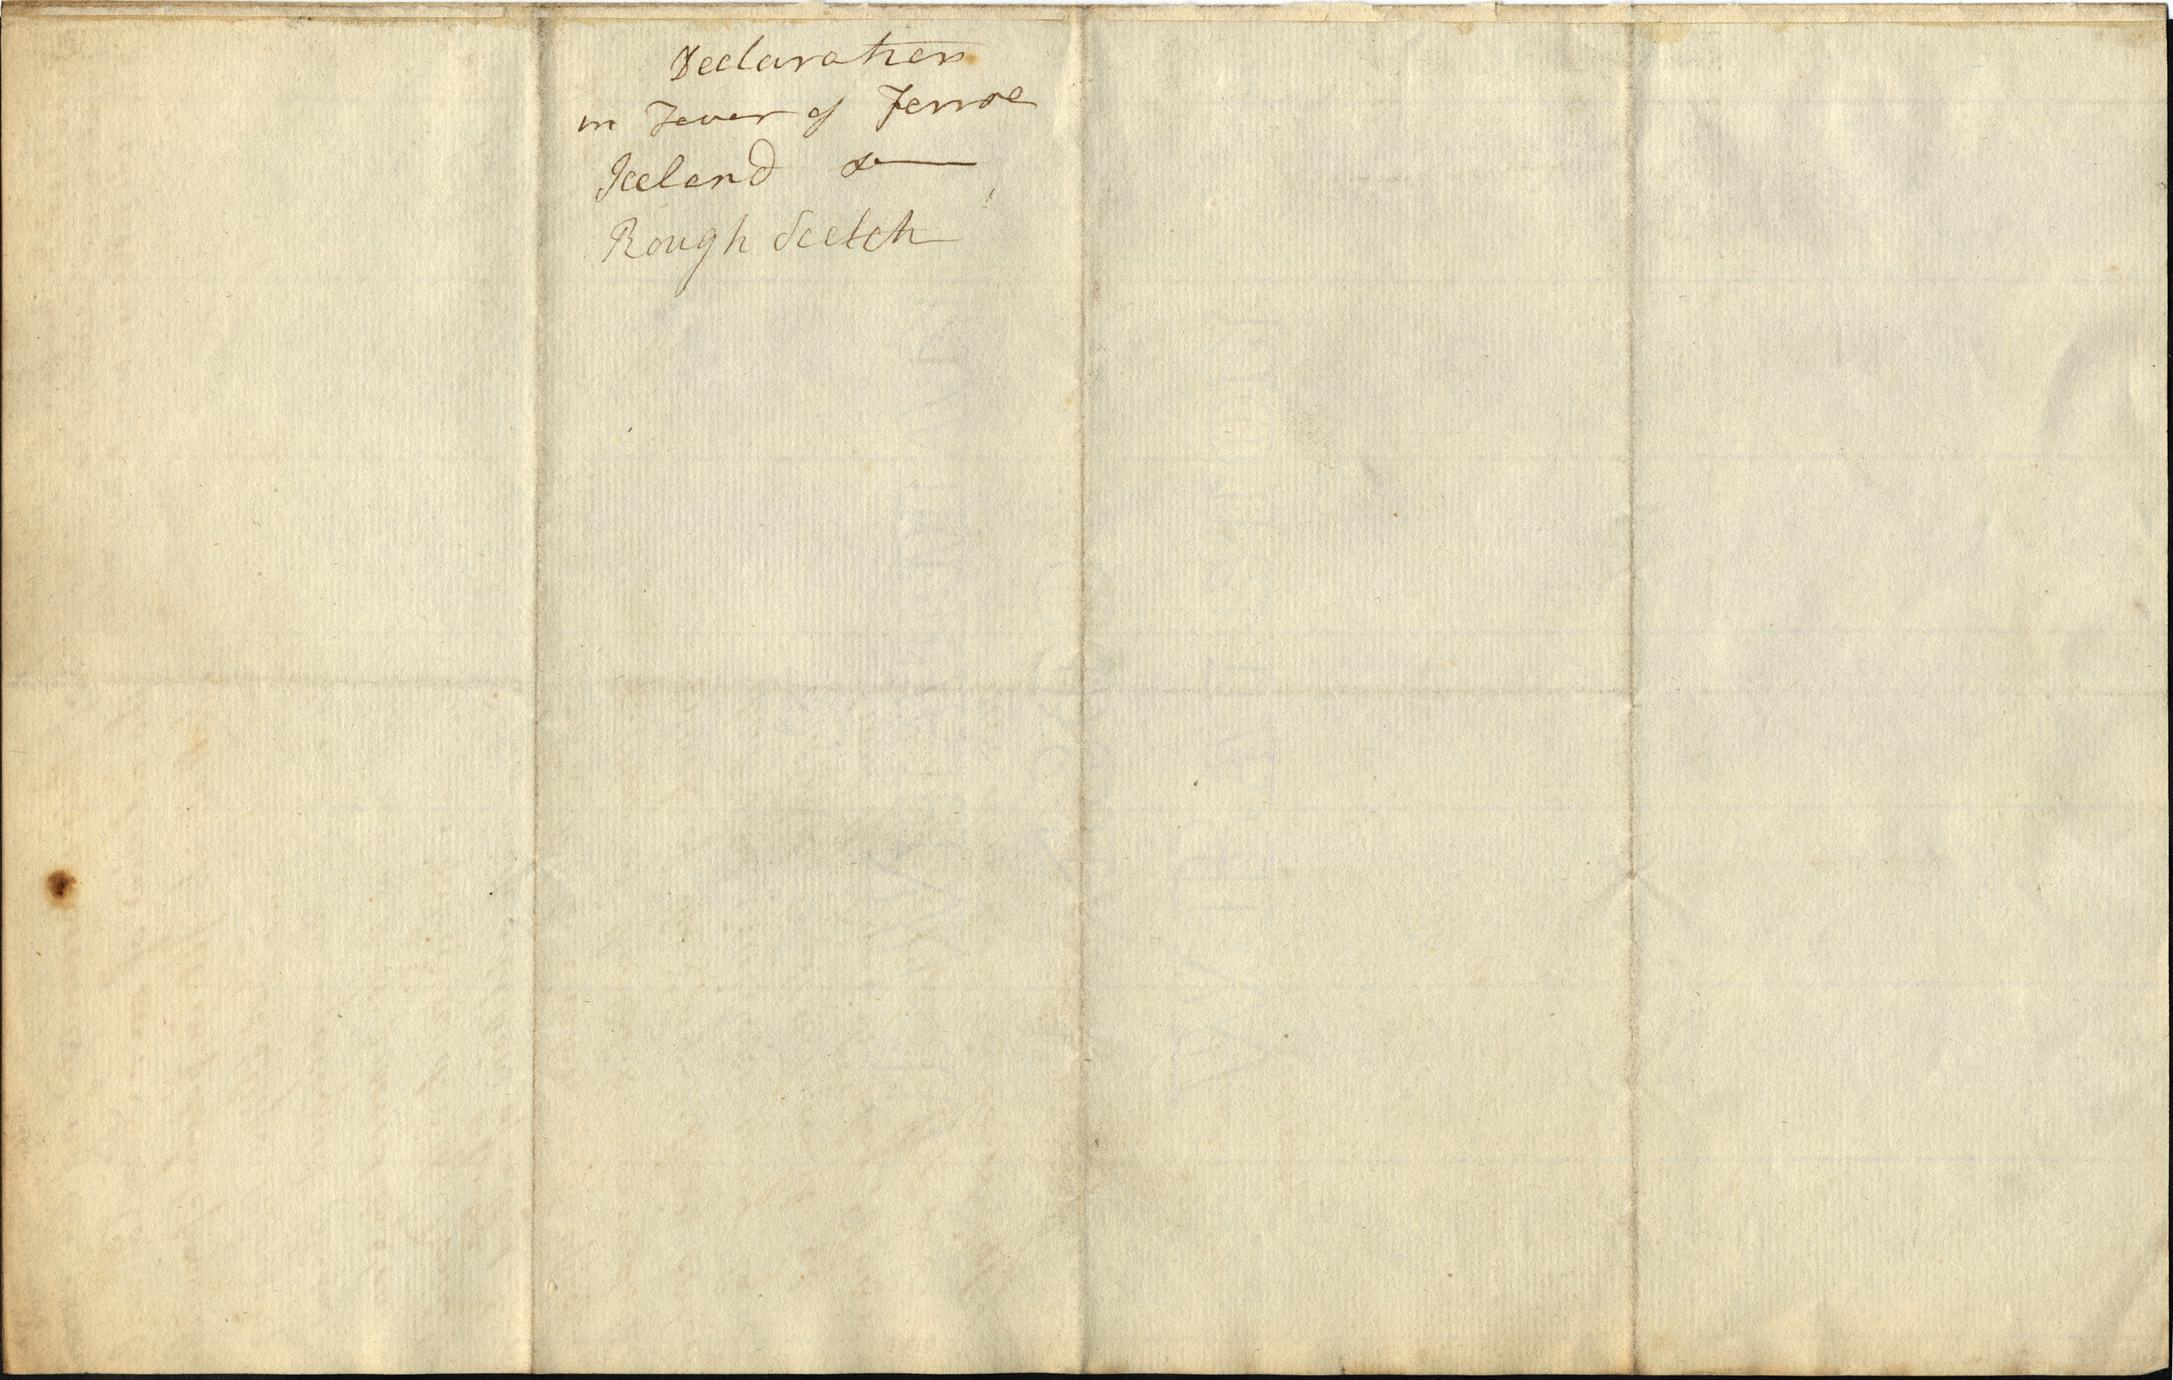 Declaration
in Favor of Ferroe
Iceland &——
Rough Scetch